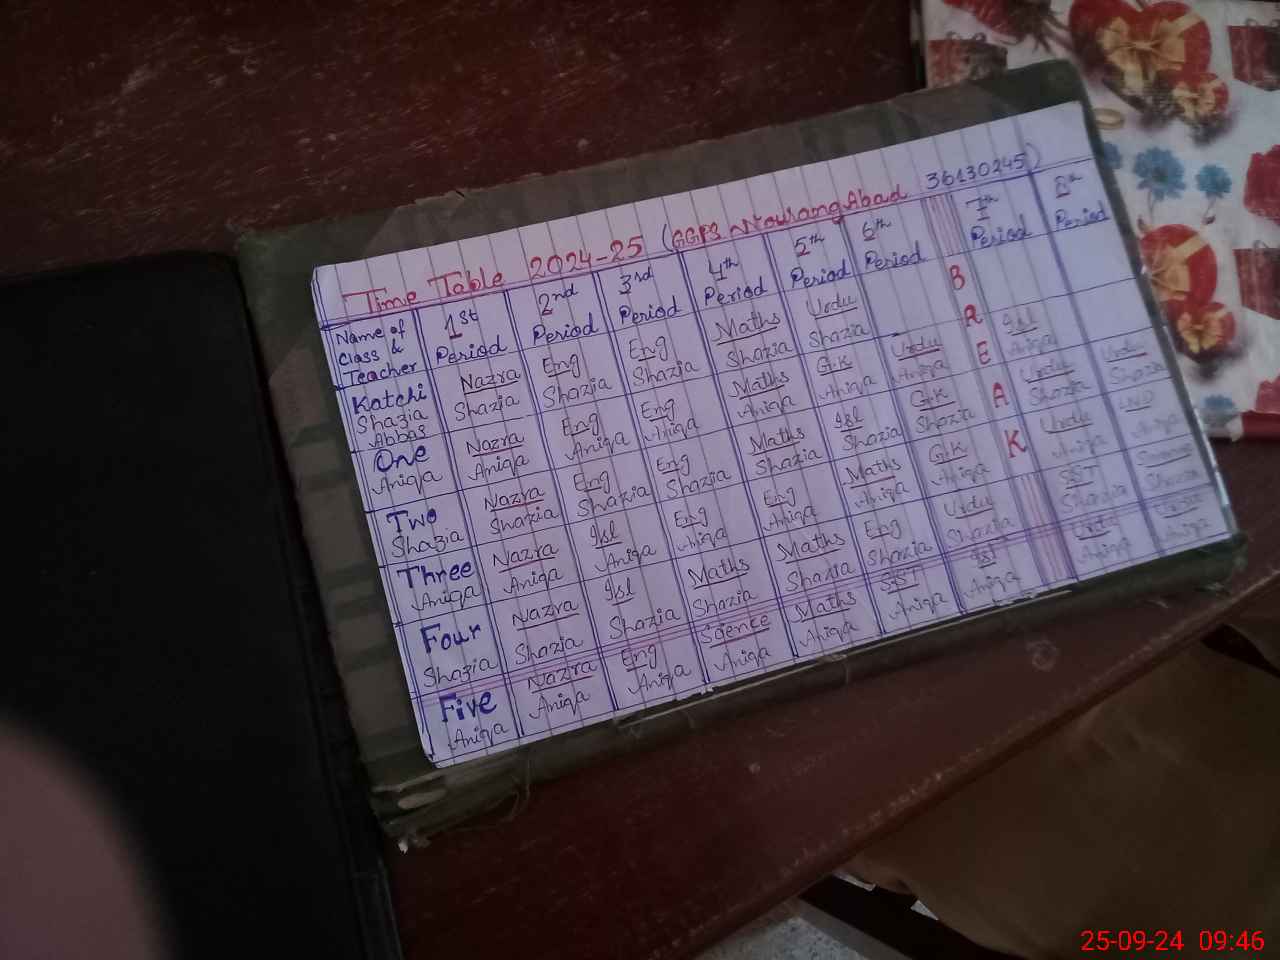 Time Table 2024-25 (GGPS Nourang Abad 36130245)
Name of Class & Teacher 1st Period 2nd Period 3rd Period 4th Period 5th Period 6th Period BREAK 7th Period 8th Period
Katchi Shazia Abbas Nazra Shazia Eng Shazia Eng Shazia Maths Shazia Urdu Shazia
One Aniqa Nazra Aniqa Eng Aniqa Eng Aniqa Maths Aniqa G.K Aniqa Urdu Aniqa Isl Aniqa
Two Shazia Nazra Shazia Eng Shazia Eng Shazia Maths Shazia Isl Shazia G.K Shazia Urdu Shazia Urdu Shazia
Three Aniqa Nazra Aniqa Isl Aniqa Eng Aniqa Eng Aniqa Maths Aniqa G.K Aniqa Urdu Aniqa Aniqa
Four Shazia Nazra Shazia Isl Shazia Maths Shazia Maths Shazia Eng Shazia Urdu Shazia SST Shazia Shazia
Five Aniqa Nazra Aniqa Eng Aniqa Science Aniqa Maths Aniqa SST Aniqa Isl Aniqa Urdu Aniqa Urdu Aniqa
25-09-24 09:46